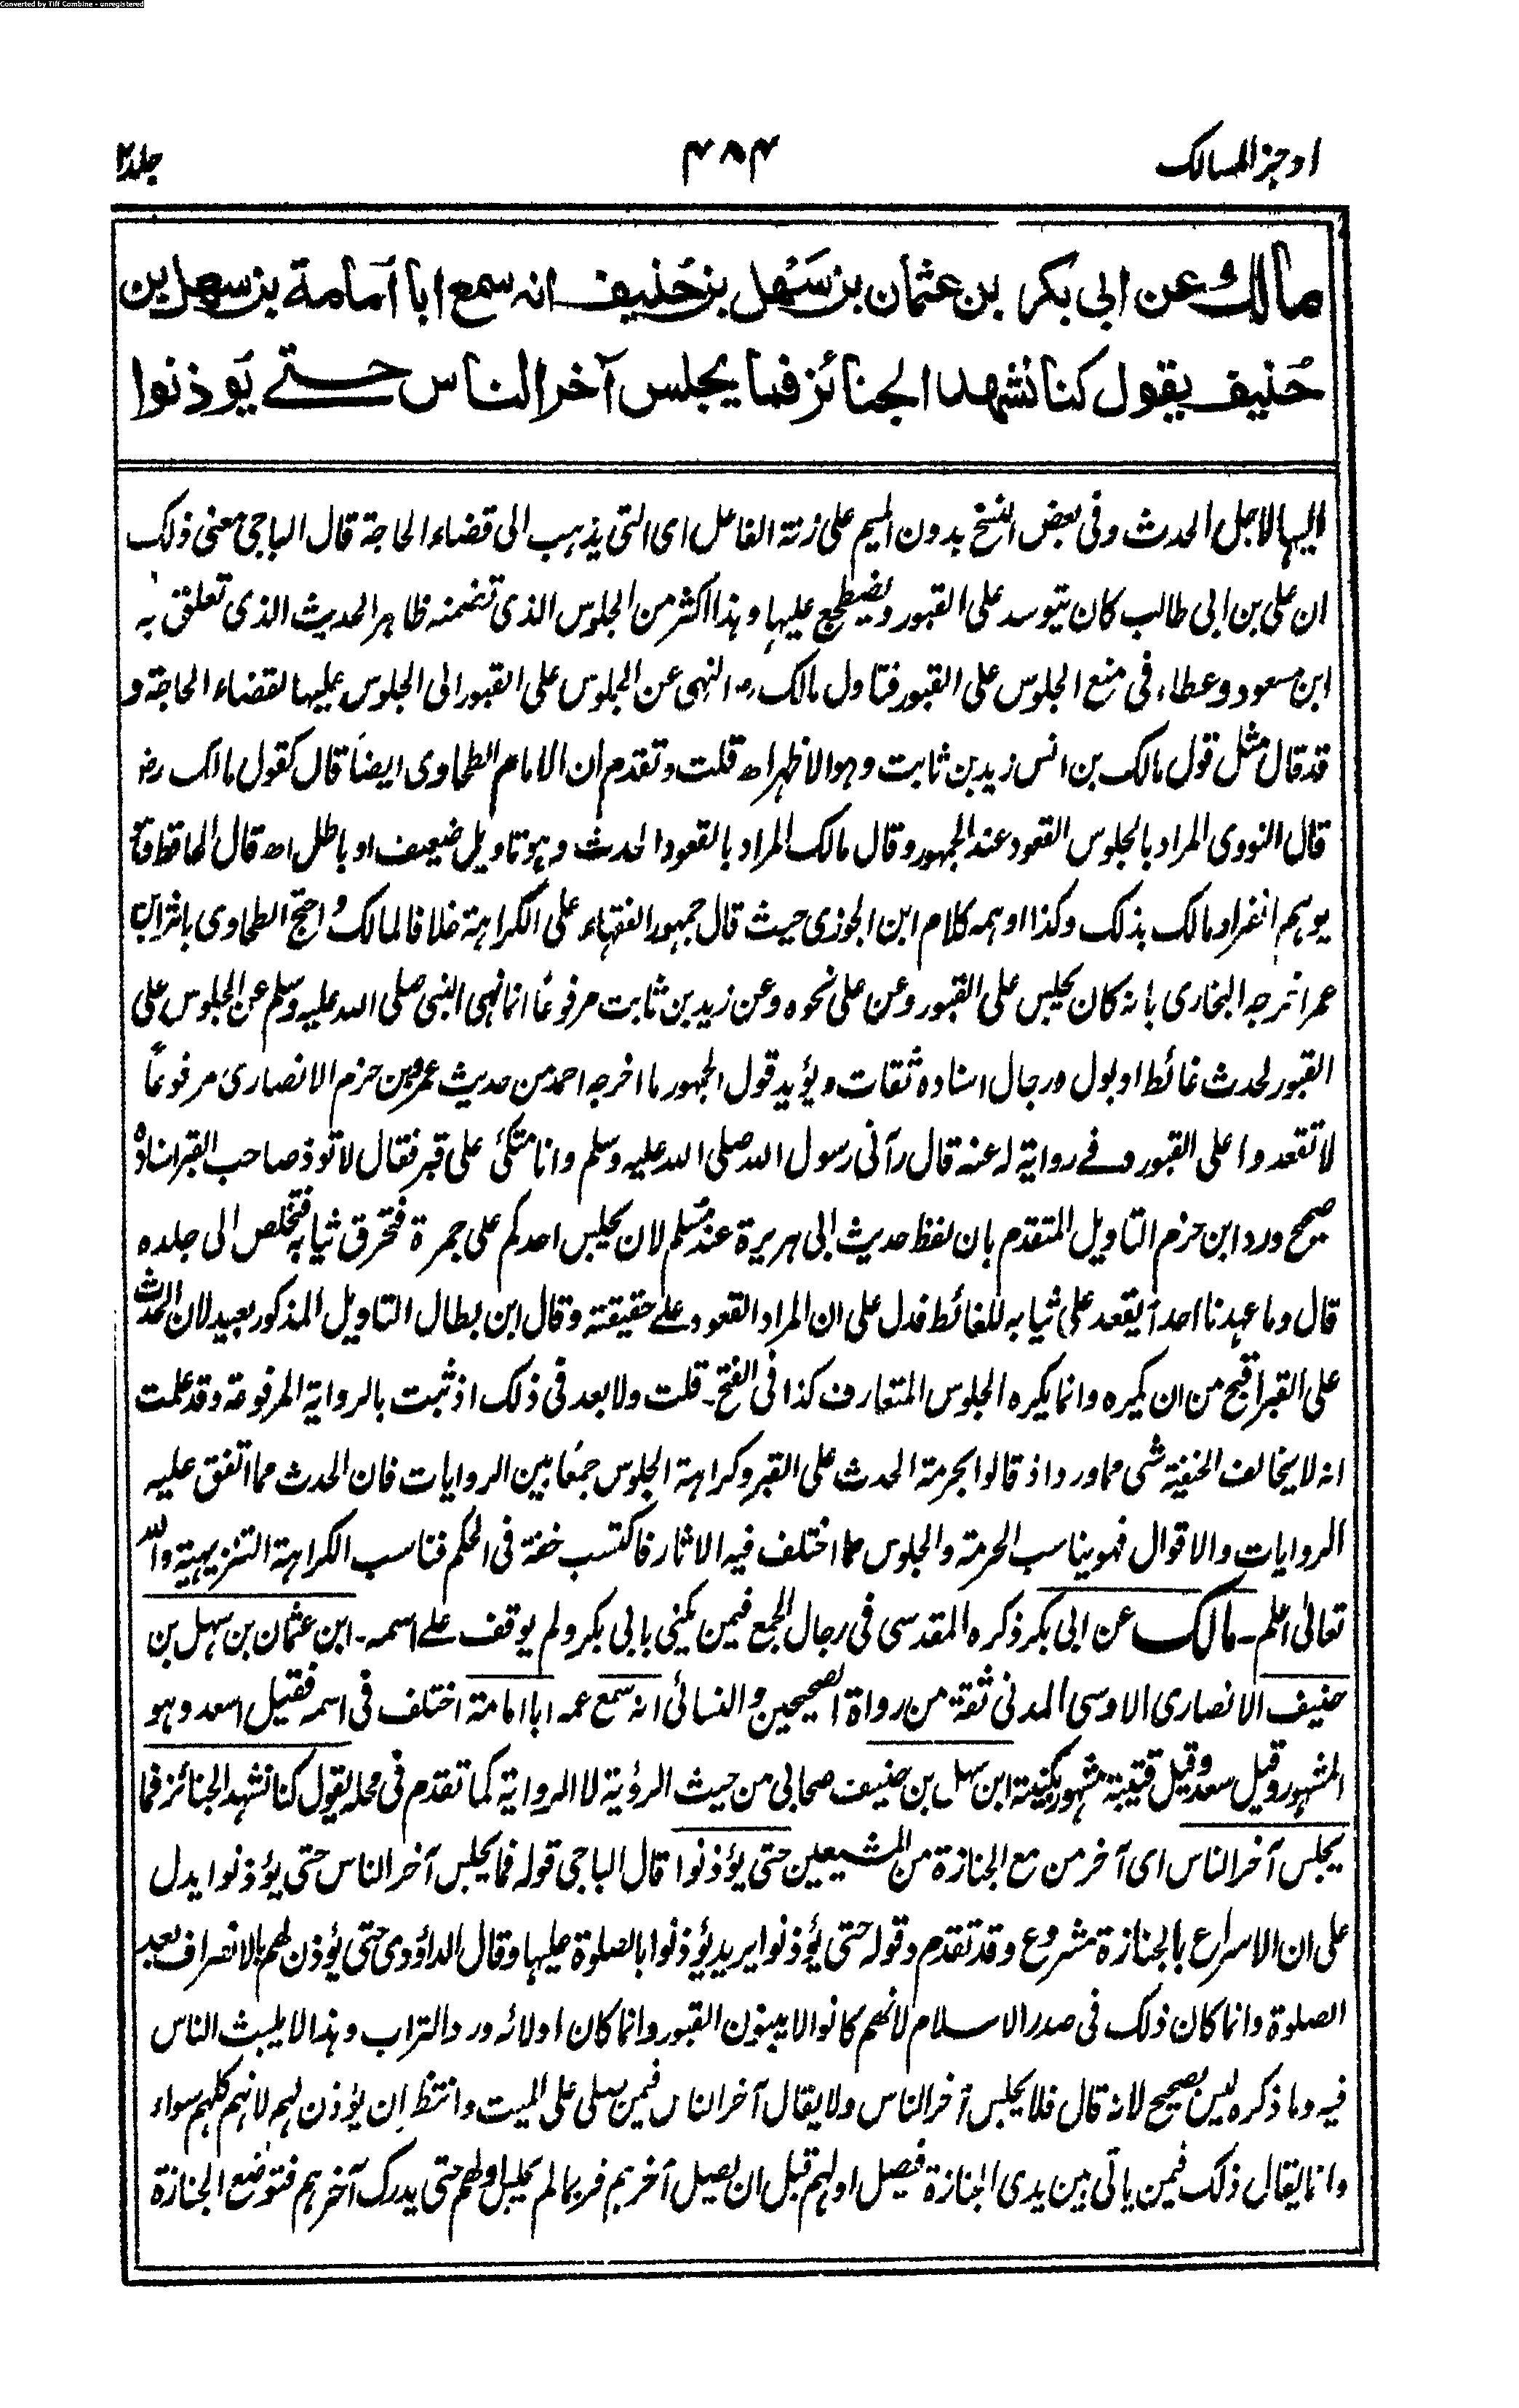 Converted by Tiff Combine - unregistered
اوجز المسالك
٤٨٤
جلد ٢
مالك عن ابى بكر بن عثمان بن سَهْل بن حُنيف انه سمع ابا اُمامة بن سهل بن
حُنيف يقول كنا نشهد الجنائز فما يجلس آخر الناس حتى يؤذنوا
اليها لاجل الحدث وفى بعض النسخ بدون الميم على زنة الفاعل اى التى يذهب الى قضاء الحاجة قال الباجى معنى ذلك
ان على بن ابى طالب كان يتوسد على القبور ويضطجع عليها وهذا اكثر من الجلوس الذى تضمنه ظاهر الحديث الذى تعلق به
ابن مسعود وعطاء فى منع الجلوس على القبور فتاول مالك رح النهى عن الجلوس على القبور الى الجلوس عليها لقضاء الحاجة و
قد قال مثل قول مالك بن انس زيد بن ثابت وهو الاظهر اھ قلت وتقدم ان الامام الطحاوى ايضاً قال كقول مالك رض
قال النووى المراد بالجلوس القعود عند الجمهور وقال مالك المراد بالقعود الحدث وهو تاويل ضعيف او باطل اھ قال الحافظ
يوهم انفراد مالك بذلك وكذا اوهمه كلام ابن الجوزى حيث قال جمهور الفقهاء على الكراهة خلافا لمالك واحتج الطحاوى باثر ابن
عمر اخرجه البخارى بانه كان يجلس على القبور وعن على نحوه وعن زيد بن ثابت مرفوعًا انما نهى النبى صلى الله عليه وسلم عن الجلوس على
القبور لحدث غائط او بول ورجال اسناده ثقات ويؤيد قول الجمهور ما اخرجه احمد من حديث عمرو بن حزم الانصارى مرفوعاً
لا تقعدوا على القبور وفى رواية له عنه قال رآنى رسول الله صلى الله عليه وسلم وانا متكئ على قبر فقال لا تؤذ صاحب القبر اسناده
صحيح ورد ابن حزم التاويل المتقدم بان لفظ حديث ابى هريرة عند مسلم لان يجلس احدكم على جمرة فتحرق ثيابه فتخلص الى جلده
قال وما عهدنا احداً يقعد على ثيابه للغائط فدل على ان المراد القعود على حقيقته وقال ابن بطال التاويل المذكور بعيد لان الحدث
على القبر اقبح من ان يكره وانما يكره الجلوس المتعارف كذا فى الفتح۔ قلت ولا بعد فى ذلك اذ ثبت بالرواية المرفوعة وقد علمت
انه لا يخالف الحنفية شى مما ورد اذ قالوا بحرمة الحدث على القبر وكراهة الجلوس جمعًا بين الروايات فان الحدث مما اتفق عليه
الروايات والاقوال فهو يناسب الحرمة والجلوس مما اختلف فيه الاثار فاكتسب خفة فى الحكم فناسب الكراهة التنزيهية والله
تعالىٰ اعلم۔ مالك عن ابى بكر ذكره المقدسى فى رجال الجمع فيمن يكنى بابى بكر ولم يوقف على اسمه۔ ابن عثمان بن سهل بن
حنيف الانصارى الاوسى المدنى ثقة من رواة الصحيحين والنسائى انه سمع عمه ابا امامة اختلف فى اسمه فقيل اسعد وهو
المشهور وقيل سعد وقيل قتيبة مشهور بكنيته ابن سهل بن حنيف صحابى من حيث الرؤية لا الرواية كما تقدم فى محله يقول كنا نشهد الجنائز فما
يجلس آخر الناس اى آخر من مع الجنازة من المشيعين حتى يؤذنوا قال الباجى قوله فما يجلس آخر الناس حتى يؤذنوا يدل
على ان الاسراع بالجنازة مشروع وقد تقدم وقوله حتى يؤذنوا يريد يؤذنوا بالصلوة عليها وقال الداؤدى حتى يؤذن لهم بالانصراف بعد
الصلوة وانما كان ذلك فى صدر الاسلام لانهم كانوا لا يبنون القبور وانما كان اولائه ورد التراب وهذا لا يلبث الناس
فيه وما ذكره ليس بصحيح لانه قال فلا يجلس آخر الناس ولا يقال آخر الناس فيمن صلى على الميت وانتظر ان يؤذن لهم لانهم كلهم سواء
وانما يقال ذلك فيمن ياتى بين يدى الجنازة فيصل اولهم قبل ان يصل آخرهم فربما لم يجلس اولهم حتى يدرك آخرهم فتوضع الجنازة